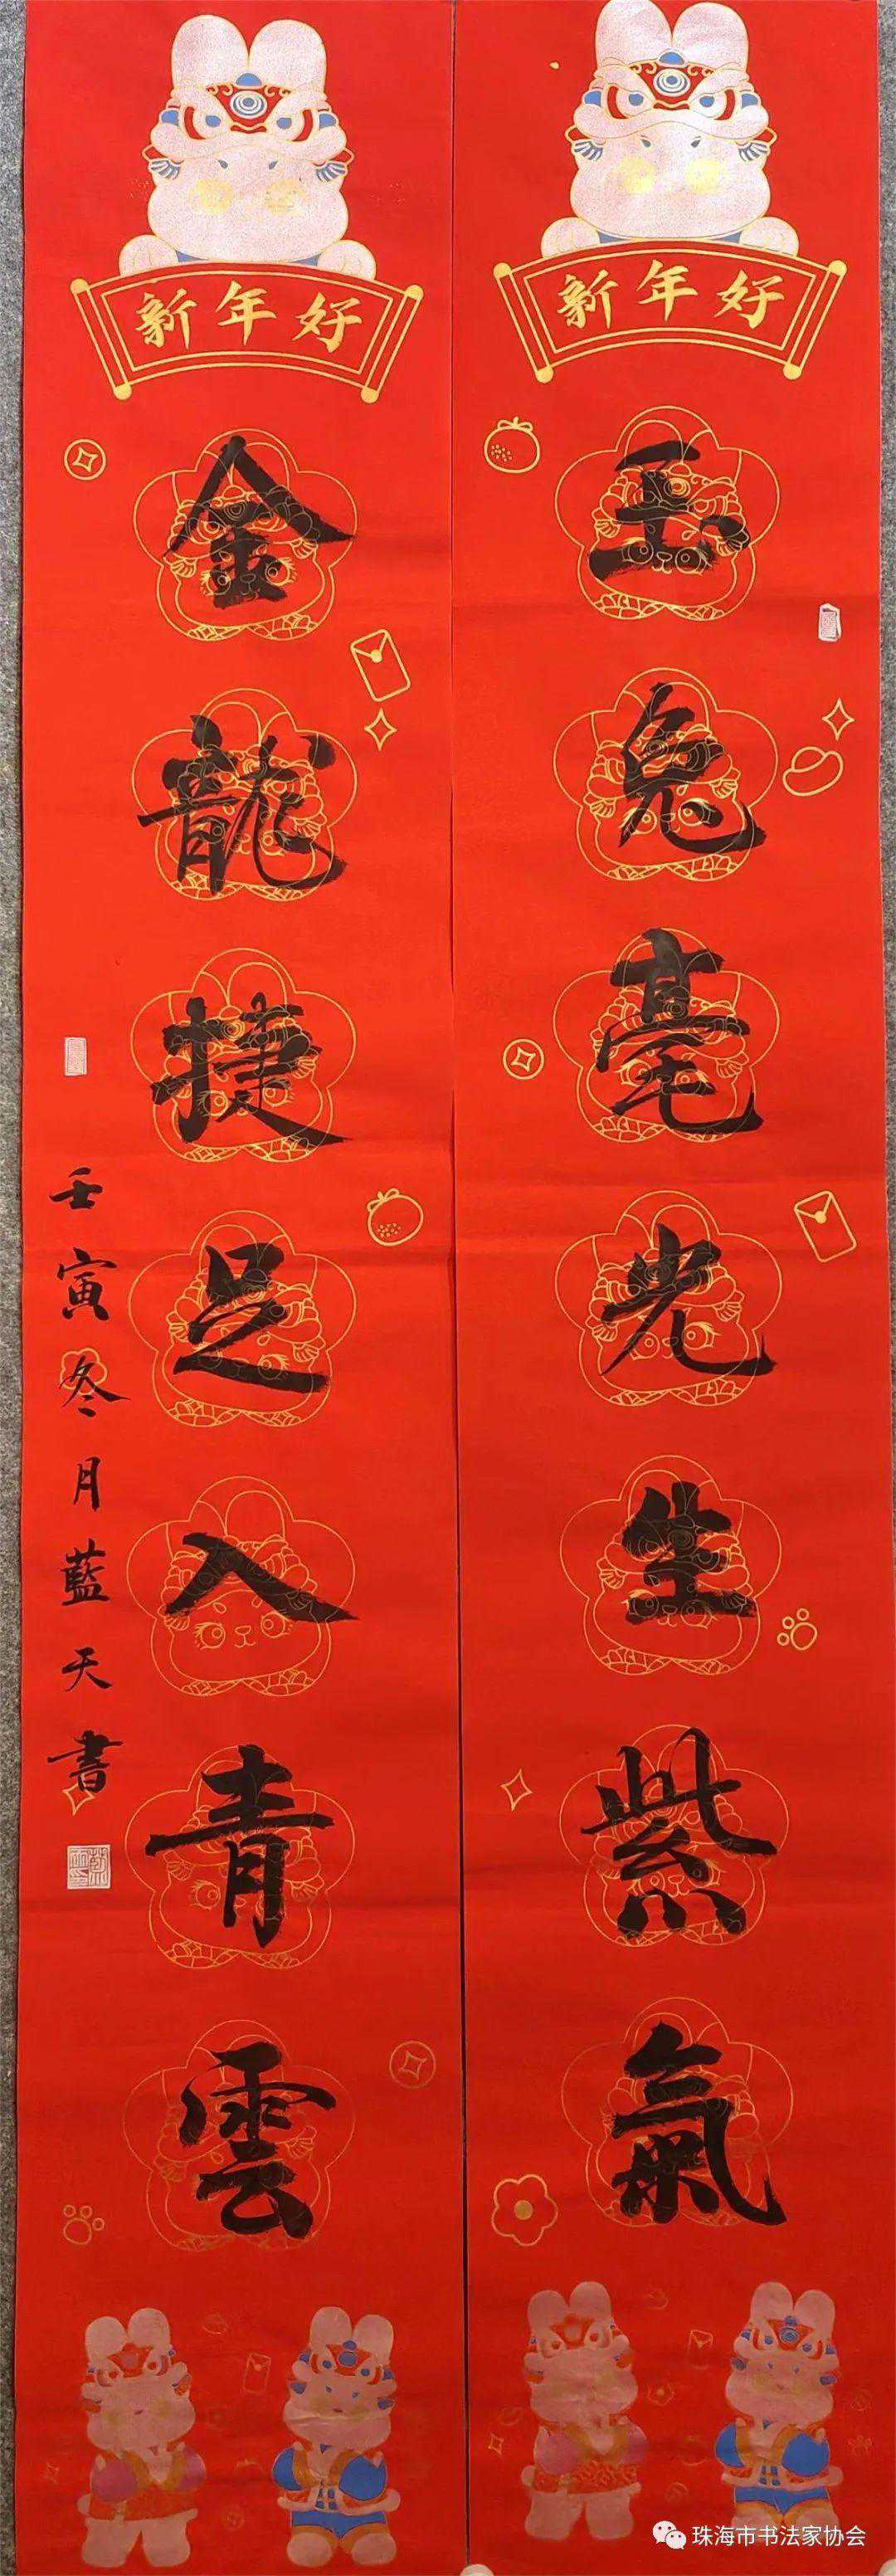 新年好
玉兔毫光生紫氣
新年好
金龍捷足入青雲
壬寅冬月藍天書
珠海市书法家协会